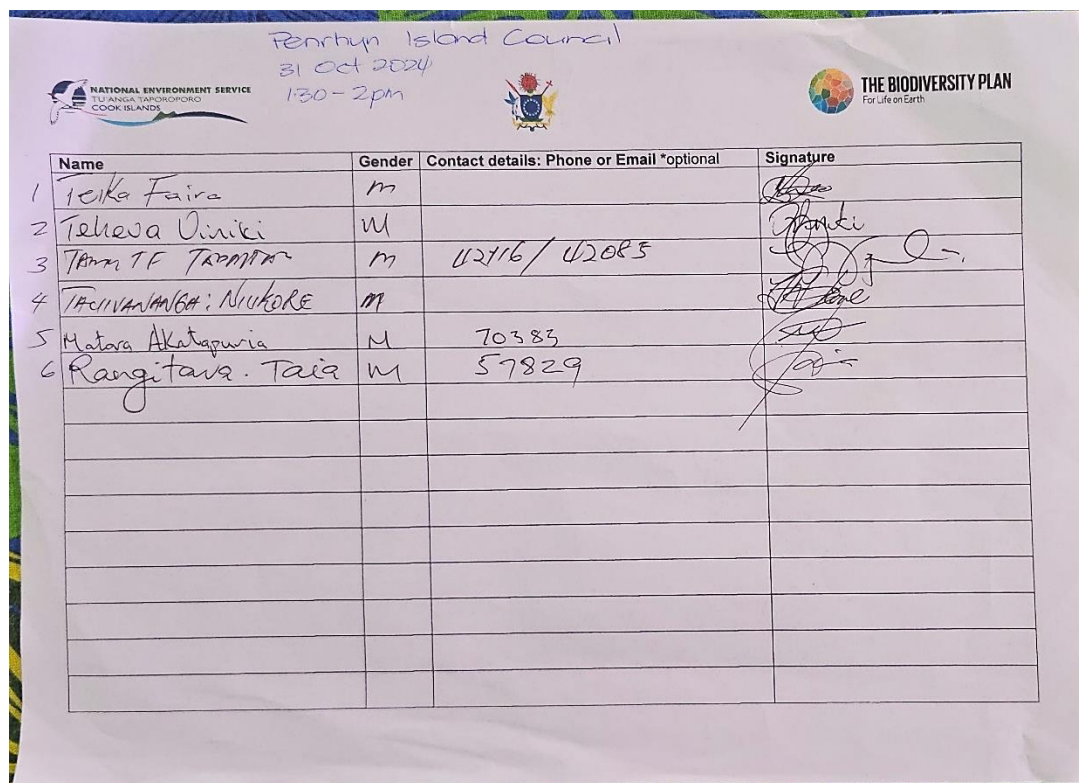 Penrhyn Island Council
31 Oct 2024
1:30 - 2pm
NATIONAL ENVIRONMENT SERVICE
TU'ANGA TAPOROPORO
COOK ISLANDS
THE BIODIVERSITY PLAN
For Life on Earth
Name Gender Contact details: Phone or Email *optional Signature
1 Teika Faira m
2 Teheva Viniki M
3 m 42716 / 42085
4 TAUIVANANGA: NIUKORE m
5 Matara Akatapuria M 70383
6 Rangitava. Taia M 57829